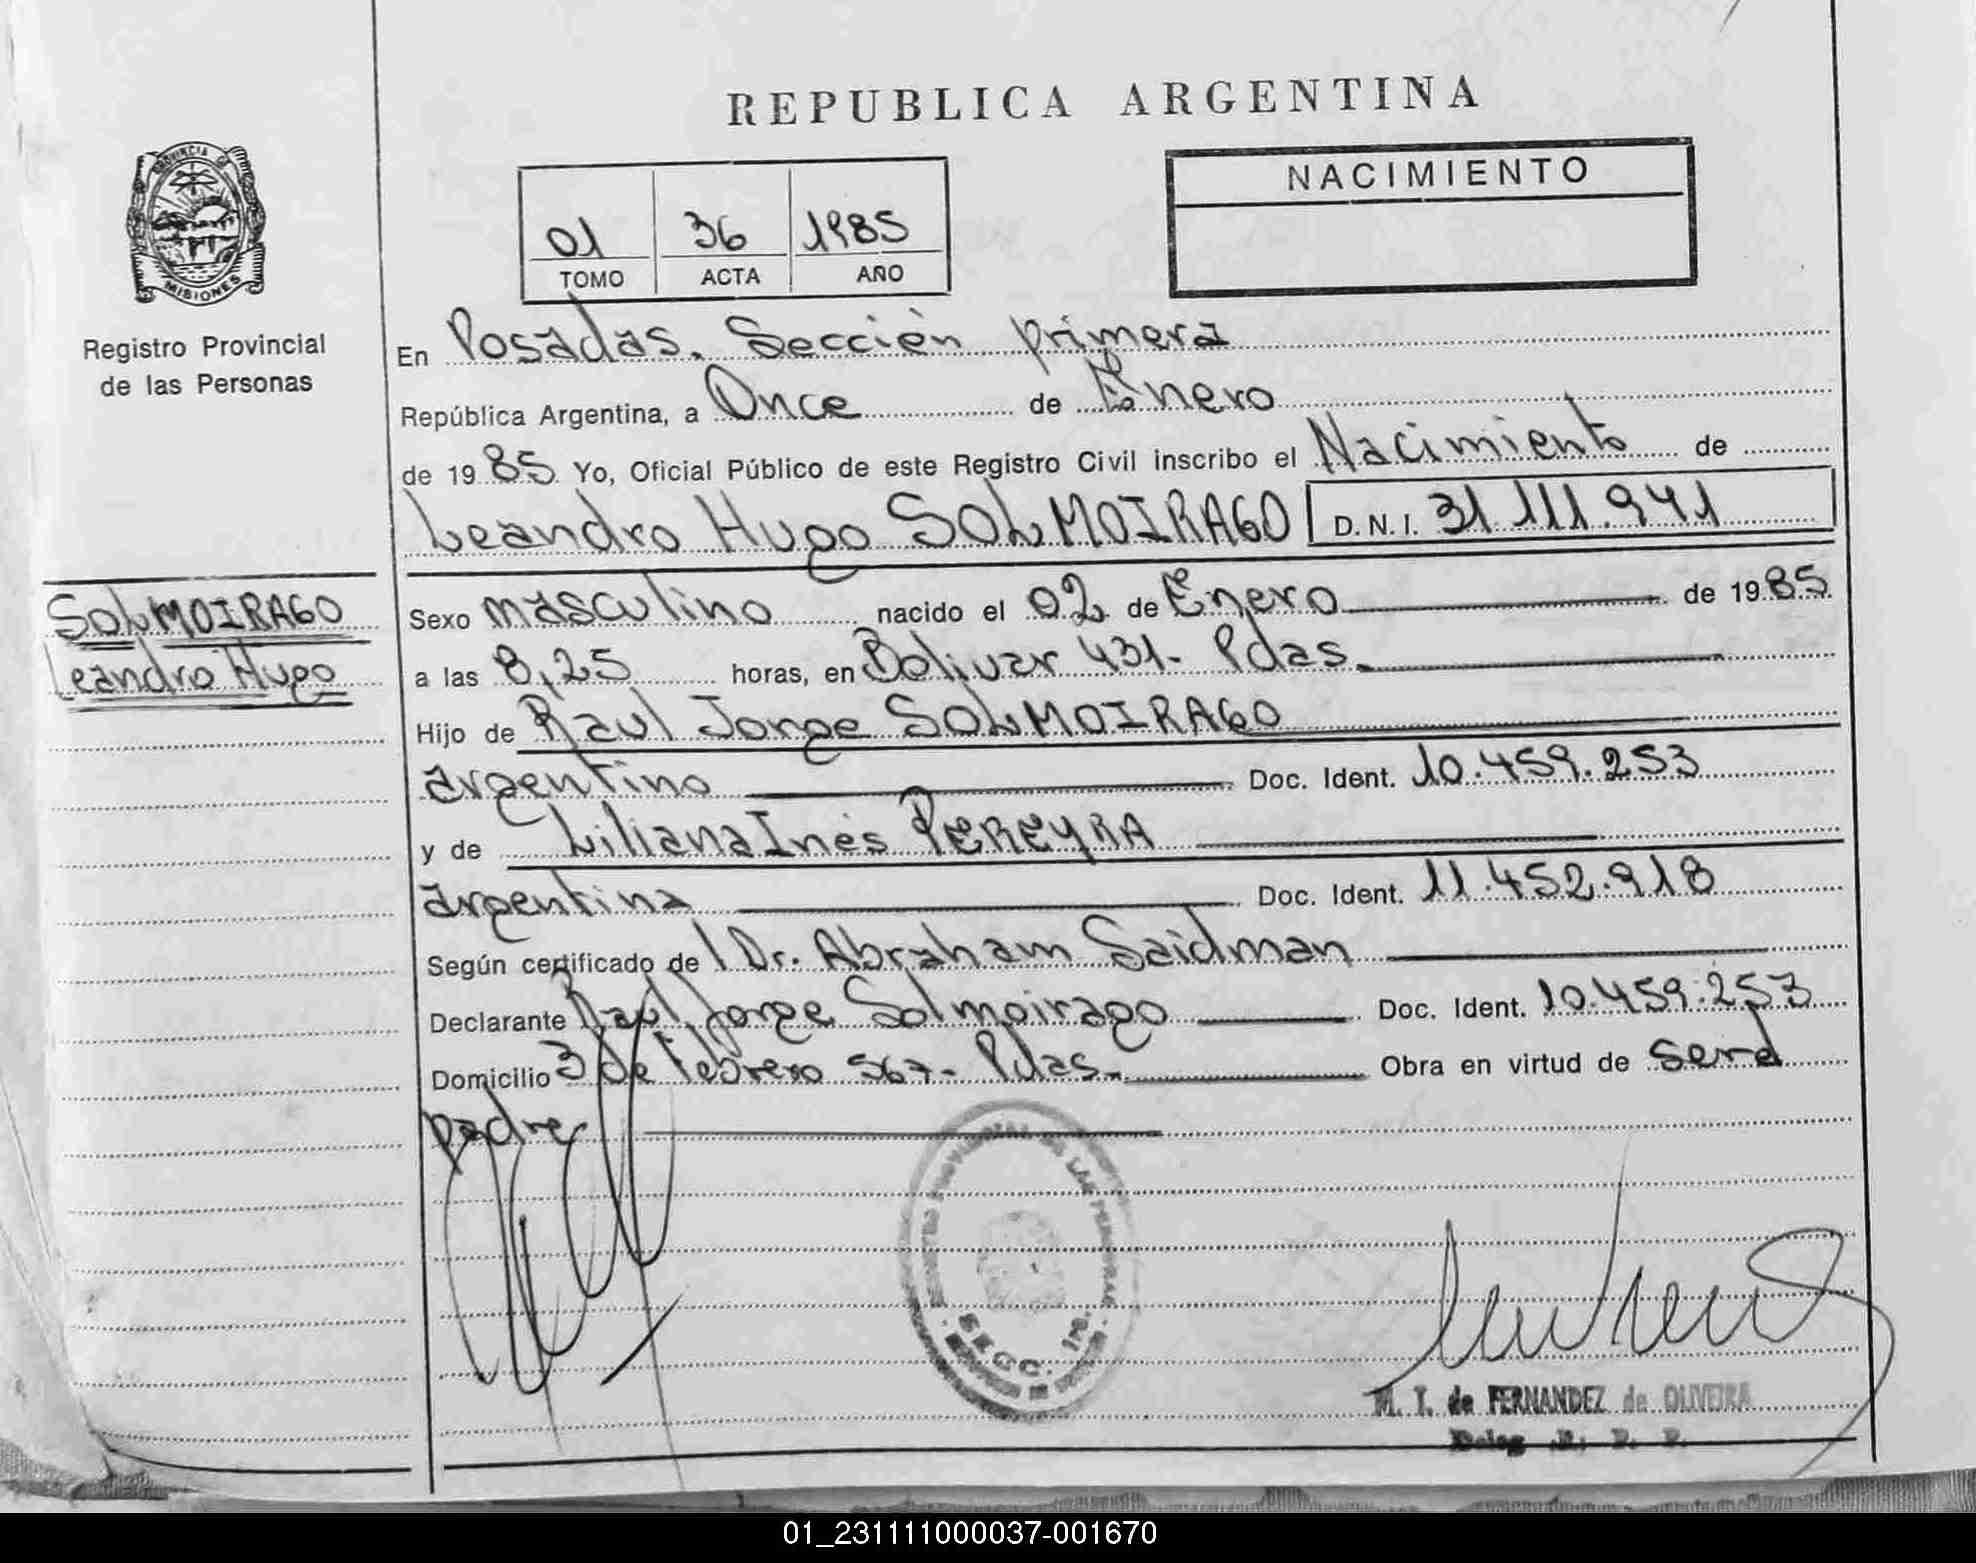 REPUBLICA ARGENTINA
PROVINCIA DE
MISIONES
Registro Provincial
de las Personas
01 36 1985
TOMO ACTA AÑO
NACIMIENTO
En Posadas. Sección primera
República Argentina, a Once de Enero
de 1985 Yo, Oficial Público de este Registro Civil inscribo el Nacimiento de
Leandro Hugo SOLMOIRAGO D.N.I. 31.111.941
SOLMOIRAGO
Leandro Hugo
Sexo masculino nacido el 02 de Enero de 1985
a las 8,25 horas, en Bolivar 431- Pdas.
Hijo de Raul Jorge SOLMOIRAGO
argentino Doc. Ident. 10.459.253
y de Liliana Inés PEREYRA
argentina Doc. Ident. 11.452.918
Según certificado de Dr. Abraham Saidman
Declarante Raul Jorge Solmoirago Doc. Ident. 10.459.253
Domicilio 3 de febrero 567- Pdas. Obra en virtud de ser el
padre
LAS PERSONAS
SECC. 1RA.
M. I. de FERNANDEZ de OLIVEIRA
Deleg. R. P. P.
01_231111000037-001670